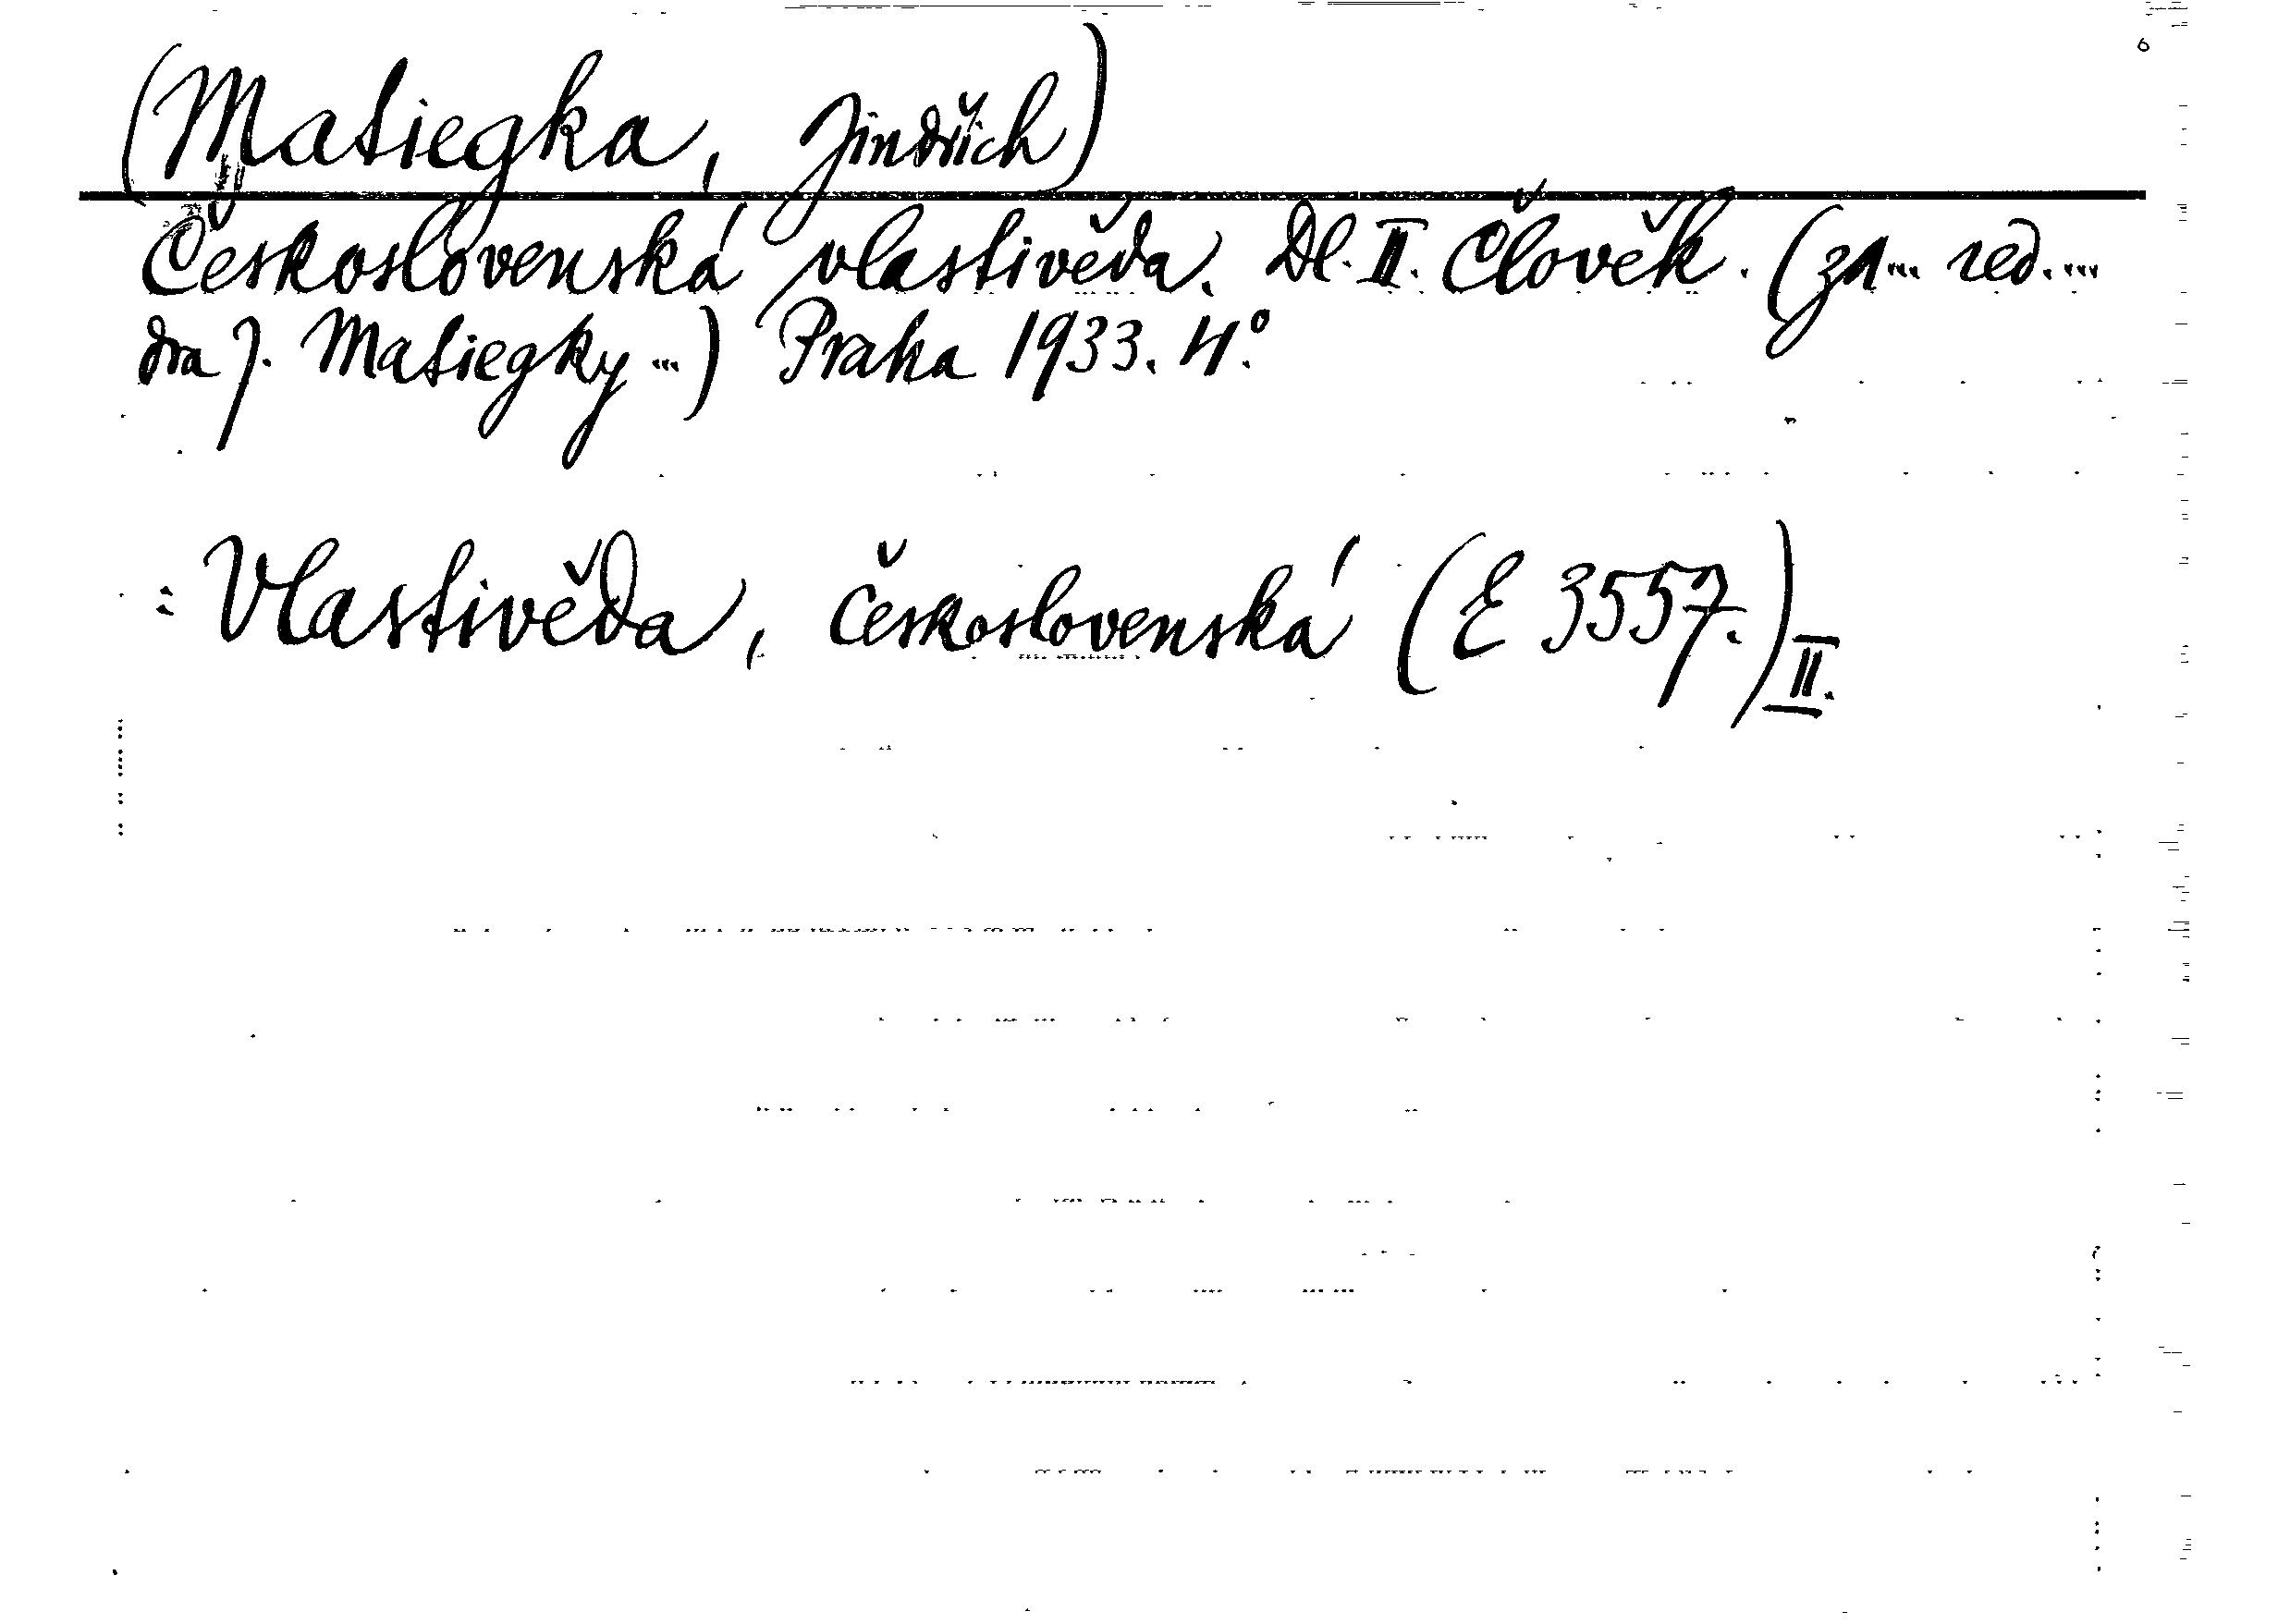 (Matiegka, Jindřich)
Československá vlastivěda. Dl. II. Člověk. (za... red....
dra J. Matiegky ...) Praha 1933. 4°.
: Vlastivěda, československá (E 3557.) II.